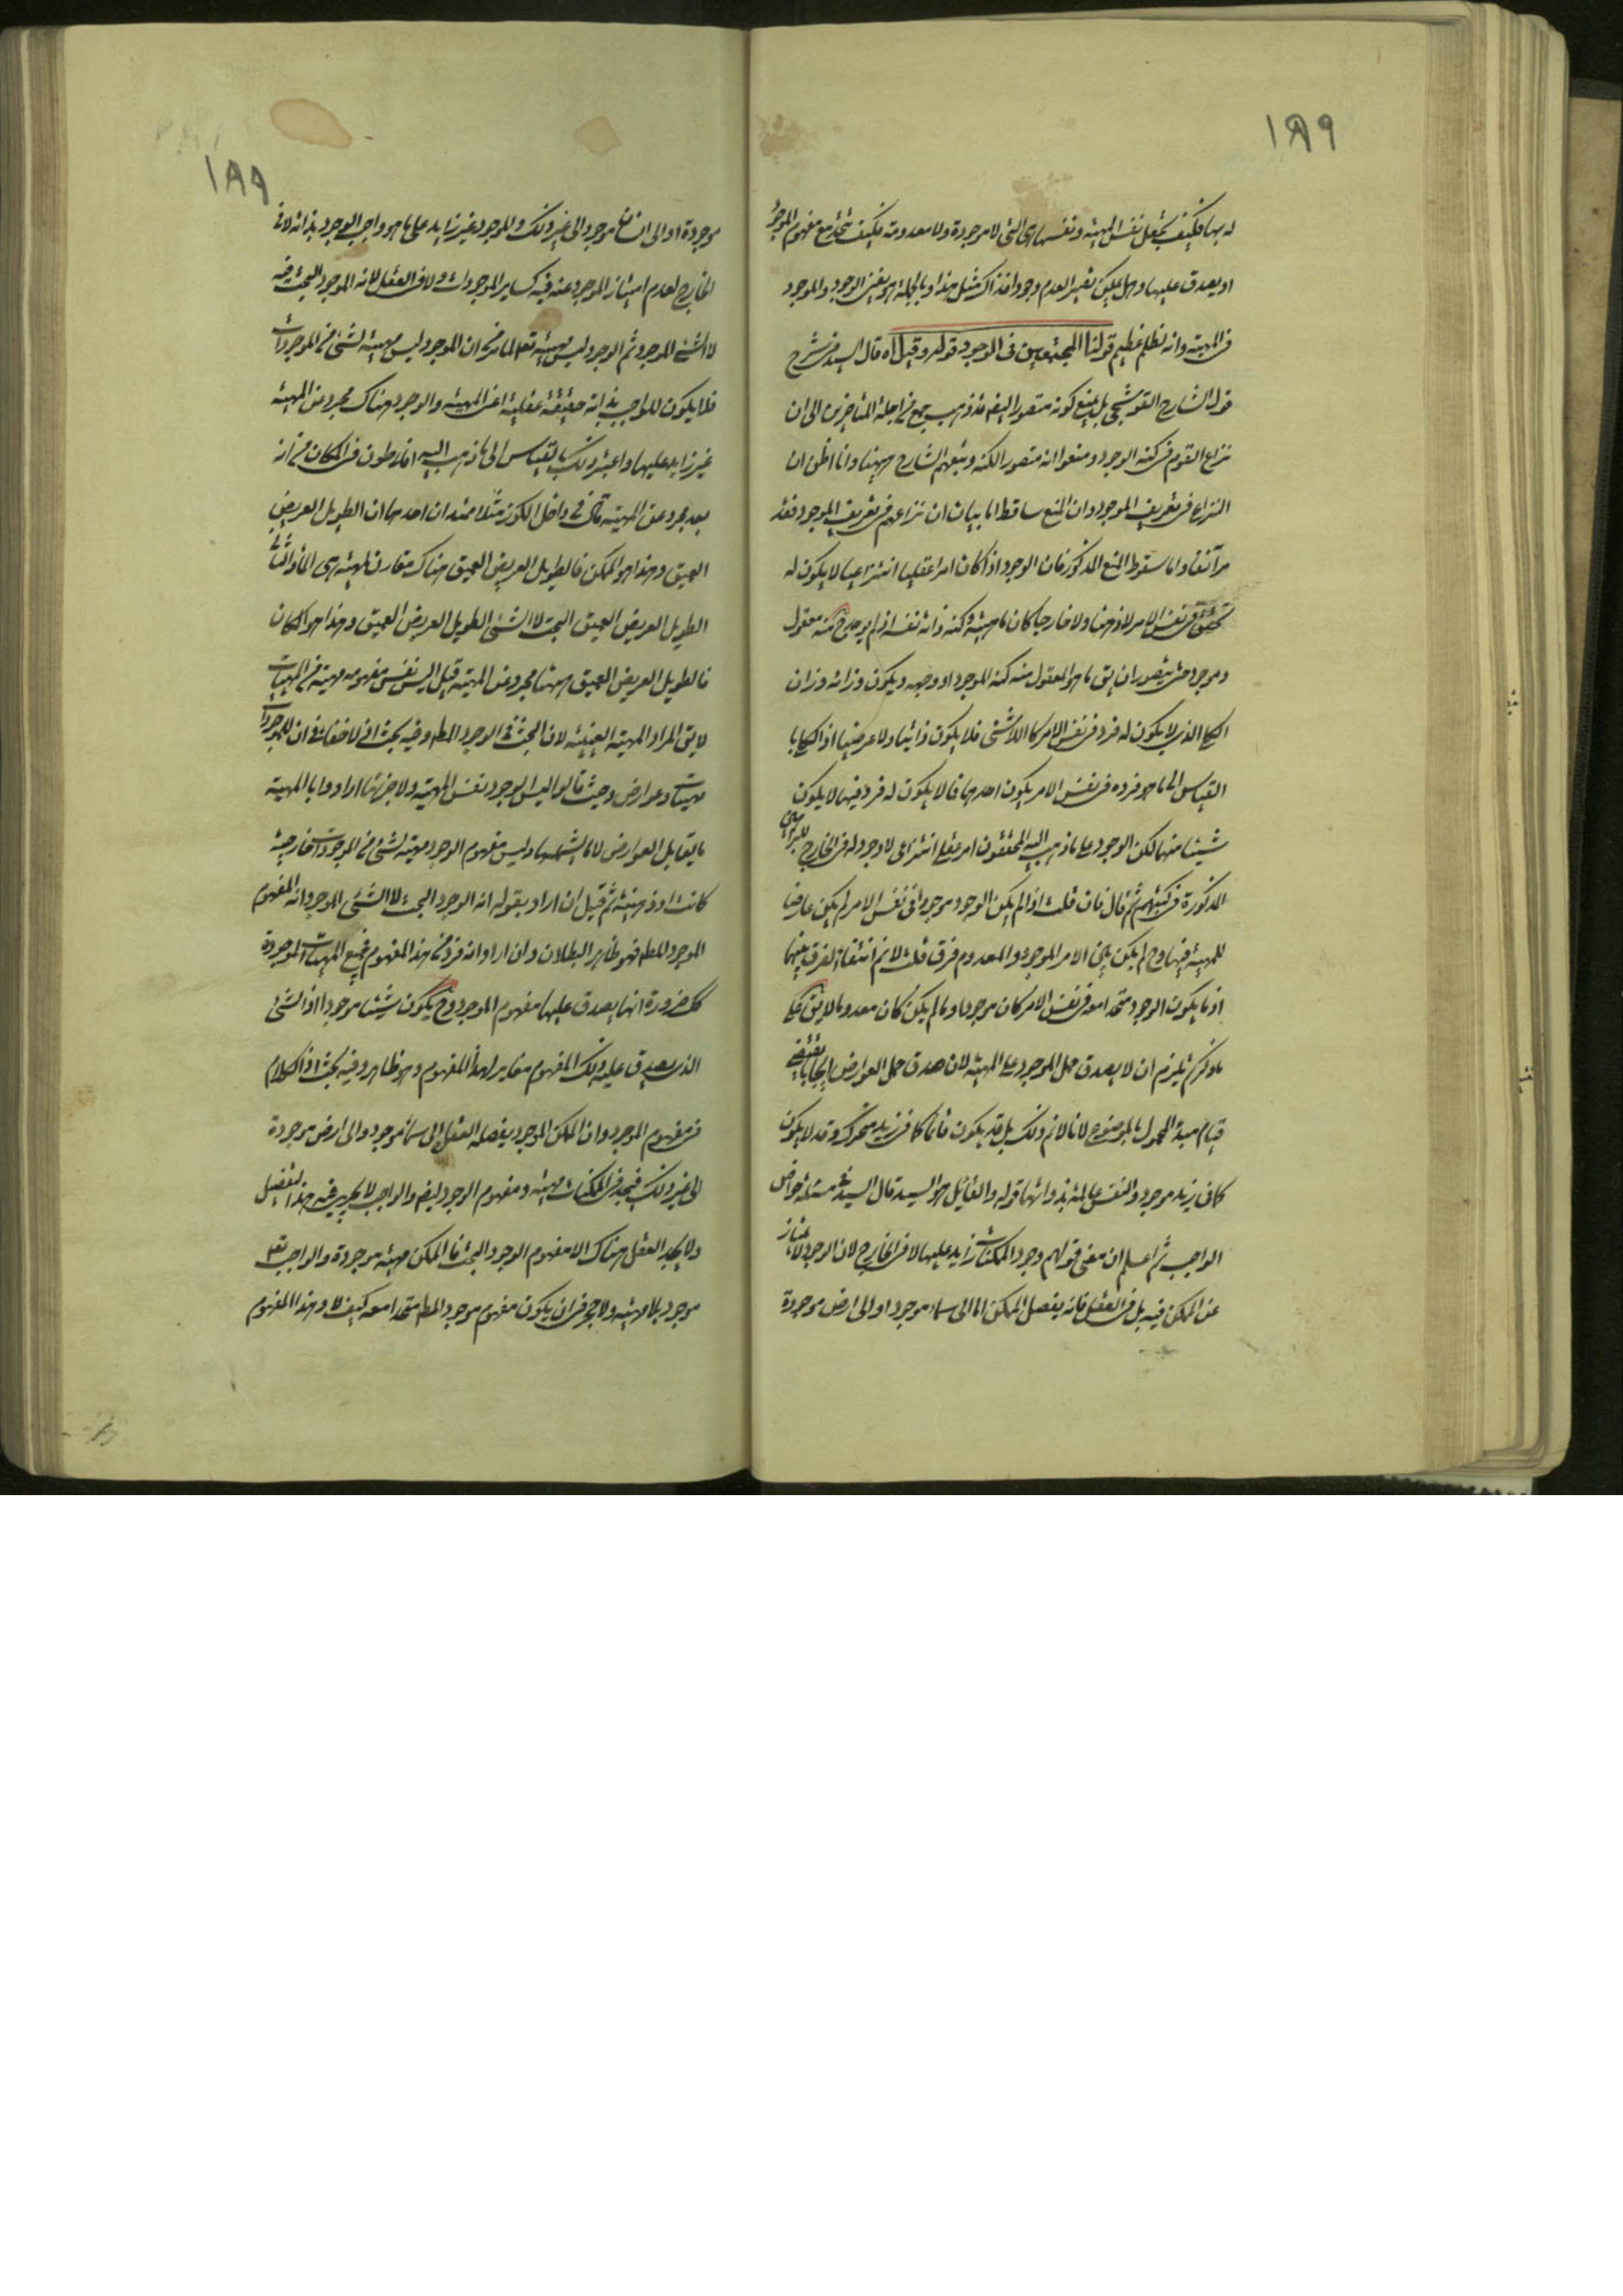 ١٨٩
له بها فكيف يجعل نفس المهية ونفسها هى التى لا موجودة ولا معدومة فكيف تتحد مع مفهوم الموجود
او يصدق عليها وهل يمكن تغير العدم وجودا فذاك مثل هذا وبالجملة هو بعين الوجود والموجود
فى المهية وانه لظلم عظيم قولنا المجتمعين فى الوجود قوله وقيل اه قال السيد فى شرح
قول الشارح القوشجى بل يمنع كونه متصورا ايضا قد ذهب جمع من اجلة المتاخرين الى ان
نزاع القوم فى كنه الوجود ومنعوا انه متصور الكنه وتبعهم الشارح ههنا وانا اظن ان
النزاع فى تعريف الموجود وان المنع ساقط اما بيان ان نزاعهم فى تعريف الموجود فقد
مر آنفا واما سقوط المنع المذكور فان الوجود اذا كان امرا عقليا انتزاعيا لا يكون له
تحقق فى نفس الامر لا ذهنا ولا خارجا كان ماهيته وكنه ذاته نفسه اذ لم يوجد منه معقول
وموجود حتى يتصور ان يق ما هو المعقول منه كنه الموجود او وجهه ويكون وزانه وزان
الكلى الذى لا يكون له فرد فى نفس الامر كاللاشئ فلا يكون ذاتيا ولا عرضيا اذ الكلى با
القياس الى ما هو فرده فى نفس الامر يكون احدهما فما لا يكون له فرد فيها لا يكون
شيئا منهما لكن الوجود على ما ذهب اليه المحققون امر عقلى انتزاعى لا وجود له فى الخارج للبراهين
المذكورة فى كتبهم ثم قال فان قلت اذا لم يكن الوجود موجودا فى نفس الامر لم يكن عارضا
للمهية فيها وح لم يكن بين الامر الموجود والمعدوم فرق قلت لا نم انتفاء الفرق بينهما
اذ ما يكون الوجود متحدا معه فى نفس الامر كان موجودا وما لم يكن كان معدوما لا يق على
ما ذكرتم يلزم ان لا يصدق حمل الموجود على المهية لان صدق حمل العوارض ايجابا يقتضى
قيام مبدأ المحمول بالموضوع لانا لا نم ذلك بل قد يكون قائما كما فى زيد متحرك وقد لا يكون
كما فى زيد موجود والنفس عالمة بذواتها قوله والقائل هو السيد قال السيد فى مسئلة خواص
الواجب ثم اعلم ان معنى قولهم وجود الممكنات زايد عليها لا فى الخارج لان الوجود لا يمتاز
عن الممكن فيه بل فى العقل فانه يفصل الممكن اما الى سماء موجود او الى ارض موجودة
١٨٩
موجودة او الى انسان موجود الى غير ذلك والموجود غير زايد على ما هو واجب الوجود بذاته لا فى
الخارج لعدم امتياز الموجود عنه فيه كساير الموجودات ولا فى العقل لانه الموجود البحت فيه
لا الشئ الموجود ثم الوجود ليس مهية تعالى لما مر من ان الموجود ليس مهية لشئ من الموجودات
فلا يكون للواجب بذاته حقيقة عقلية اعنى المهية والوجود هناك مجرد عن المهية
غير زايد عليها واعتبر ذلك بالقياس الى ما ذهب اليه افلاطون فى المكان من انه
بعد مجرد عن المهية قال فى داخل الكوز مثلا ممتدان احدهما ان الطويل العريض
العميق وهذا هو الممكن فالطويل العريض العميق هناك مقارن لمهية هى الماء والثانى
الطويل العريض العميق البحت لا الشئ الطويل العريض العميق وهذا هو المكان
فالطويل العريض العميق ههنا مجرد عن المهية قيل اليس نفس مفهومه مهية من المهيات
لا يق المراد المهية العينية لان البحث فى الوجود المط وفيه بحث اذ لا خفاء فى ان للموجودات
مهيات وعوارض وحيث قالوا ليس الوجود نفس المهية ولا جزئها ارادوا بالمهية
ما يقابل العوارض لا ما يشملها وليس مفهوم الوجود مهية لشئ من الموجودات خارجية
كانت او ذهنية ثم قيل ان اراد بقوله انه الوجود البحت لا الشئ الموجود انه المفهوم
الموجود المط فهو ظاهر البطلان وان اراد انه فرد من هذا المفهوم فجميع المهيات الموجودة
كك ضرورة انها يصدق عليها مفهوم الموجود وح يكون شيئا موجودا اذ الشئ
الذى يصدق عليه ذلك المفهوم مغاير لهذا المفهوم وهو ظاهر وفيه بحث اذ الكلام
فى مفهوم الموجود وان الممكن الموجود يفصله العقل الى سماء موجود والى ارض موجودة
الى غير ذلك فيجد فى الممكنات مهية ومفهوم الوجود ايضا والواجب لا يجرى فيه هذا التفصيل
ولا يجد العقل هناك الا مفهوم الوجود البحت فالممكن مهية موجودة والواجب تعالى
موجود بلا مهية ولا حرج فى ان يكون مفهوم موجود المط متحدا معه كيف لا وهذا المفهوم